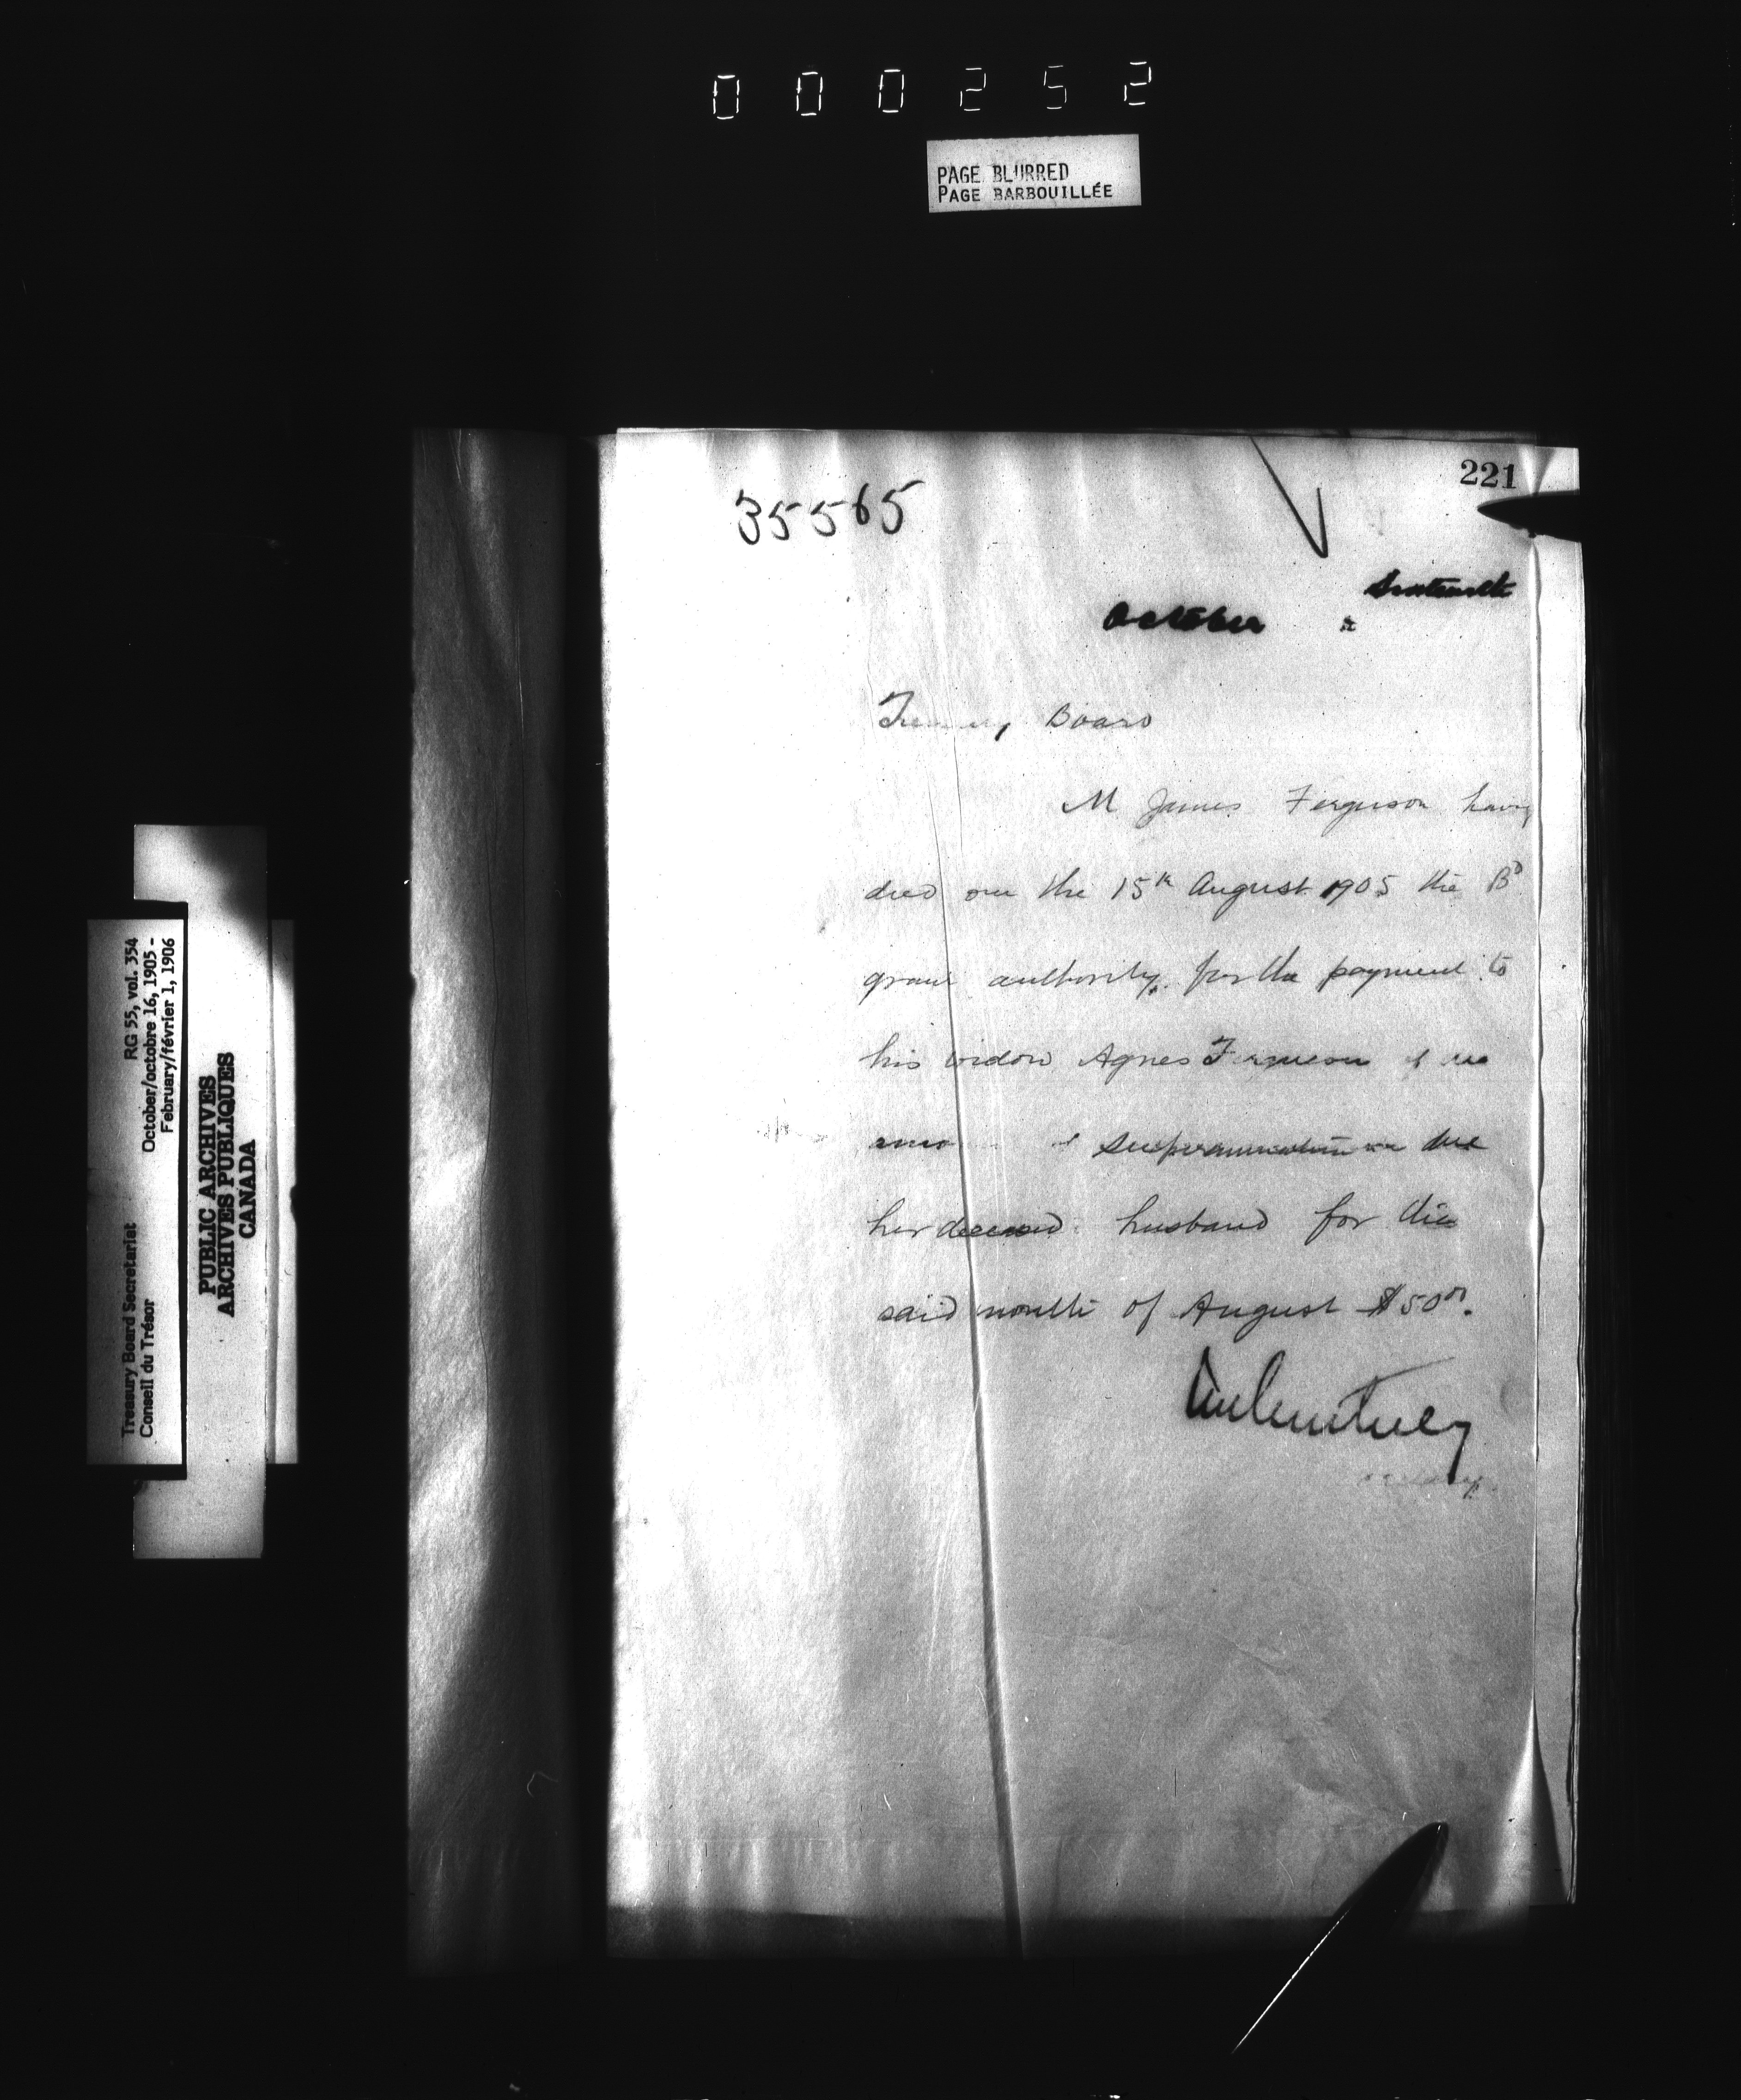 000252
PAGE BLURRED
PAGE BARBOUILLÉE
221
35565
October
Board
M James Ferguson having
died on the 15th August 1905 the Bd
grant authority for the payment to
his widow Agnes Ferguson of the
superannuation due
her deceased husband for the
said month of August $50.00.
Treasury Board Secretariat RG 55, vol. 354
Conseil du Trésor October/octobre 16, 1905 -
February/février 1, 1906
PUBLIC ARCHIVES
ARCHIVES PUBLIQUES
CANADA